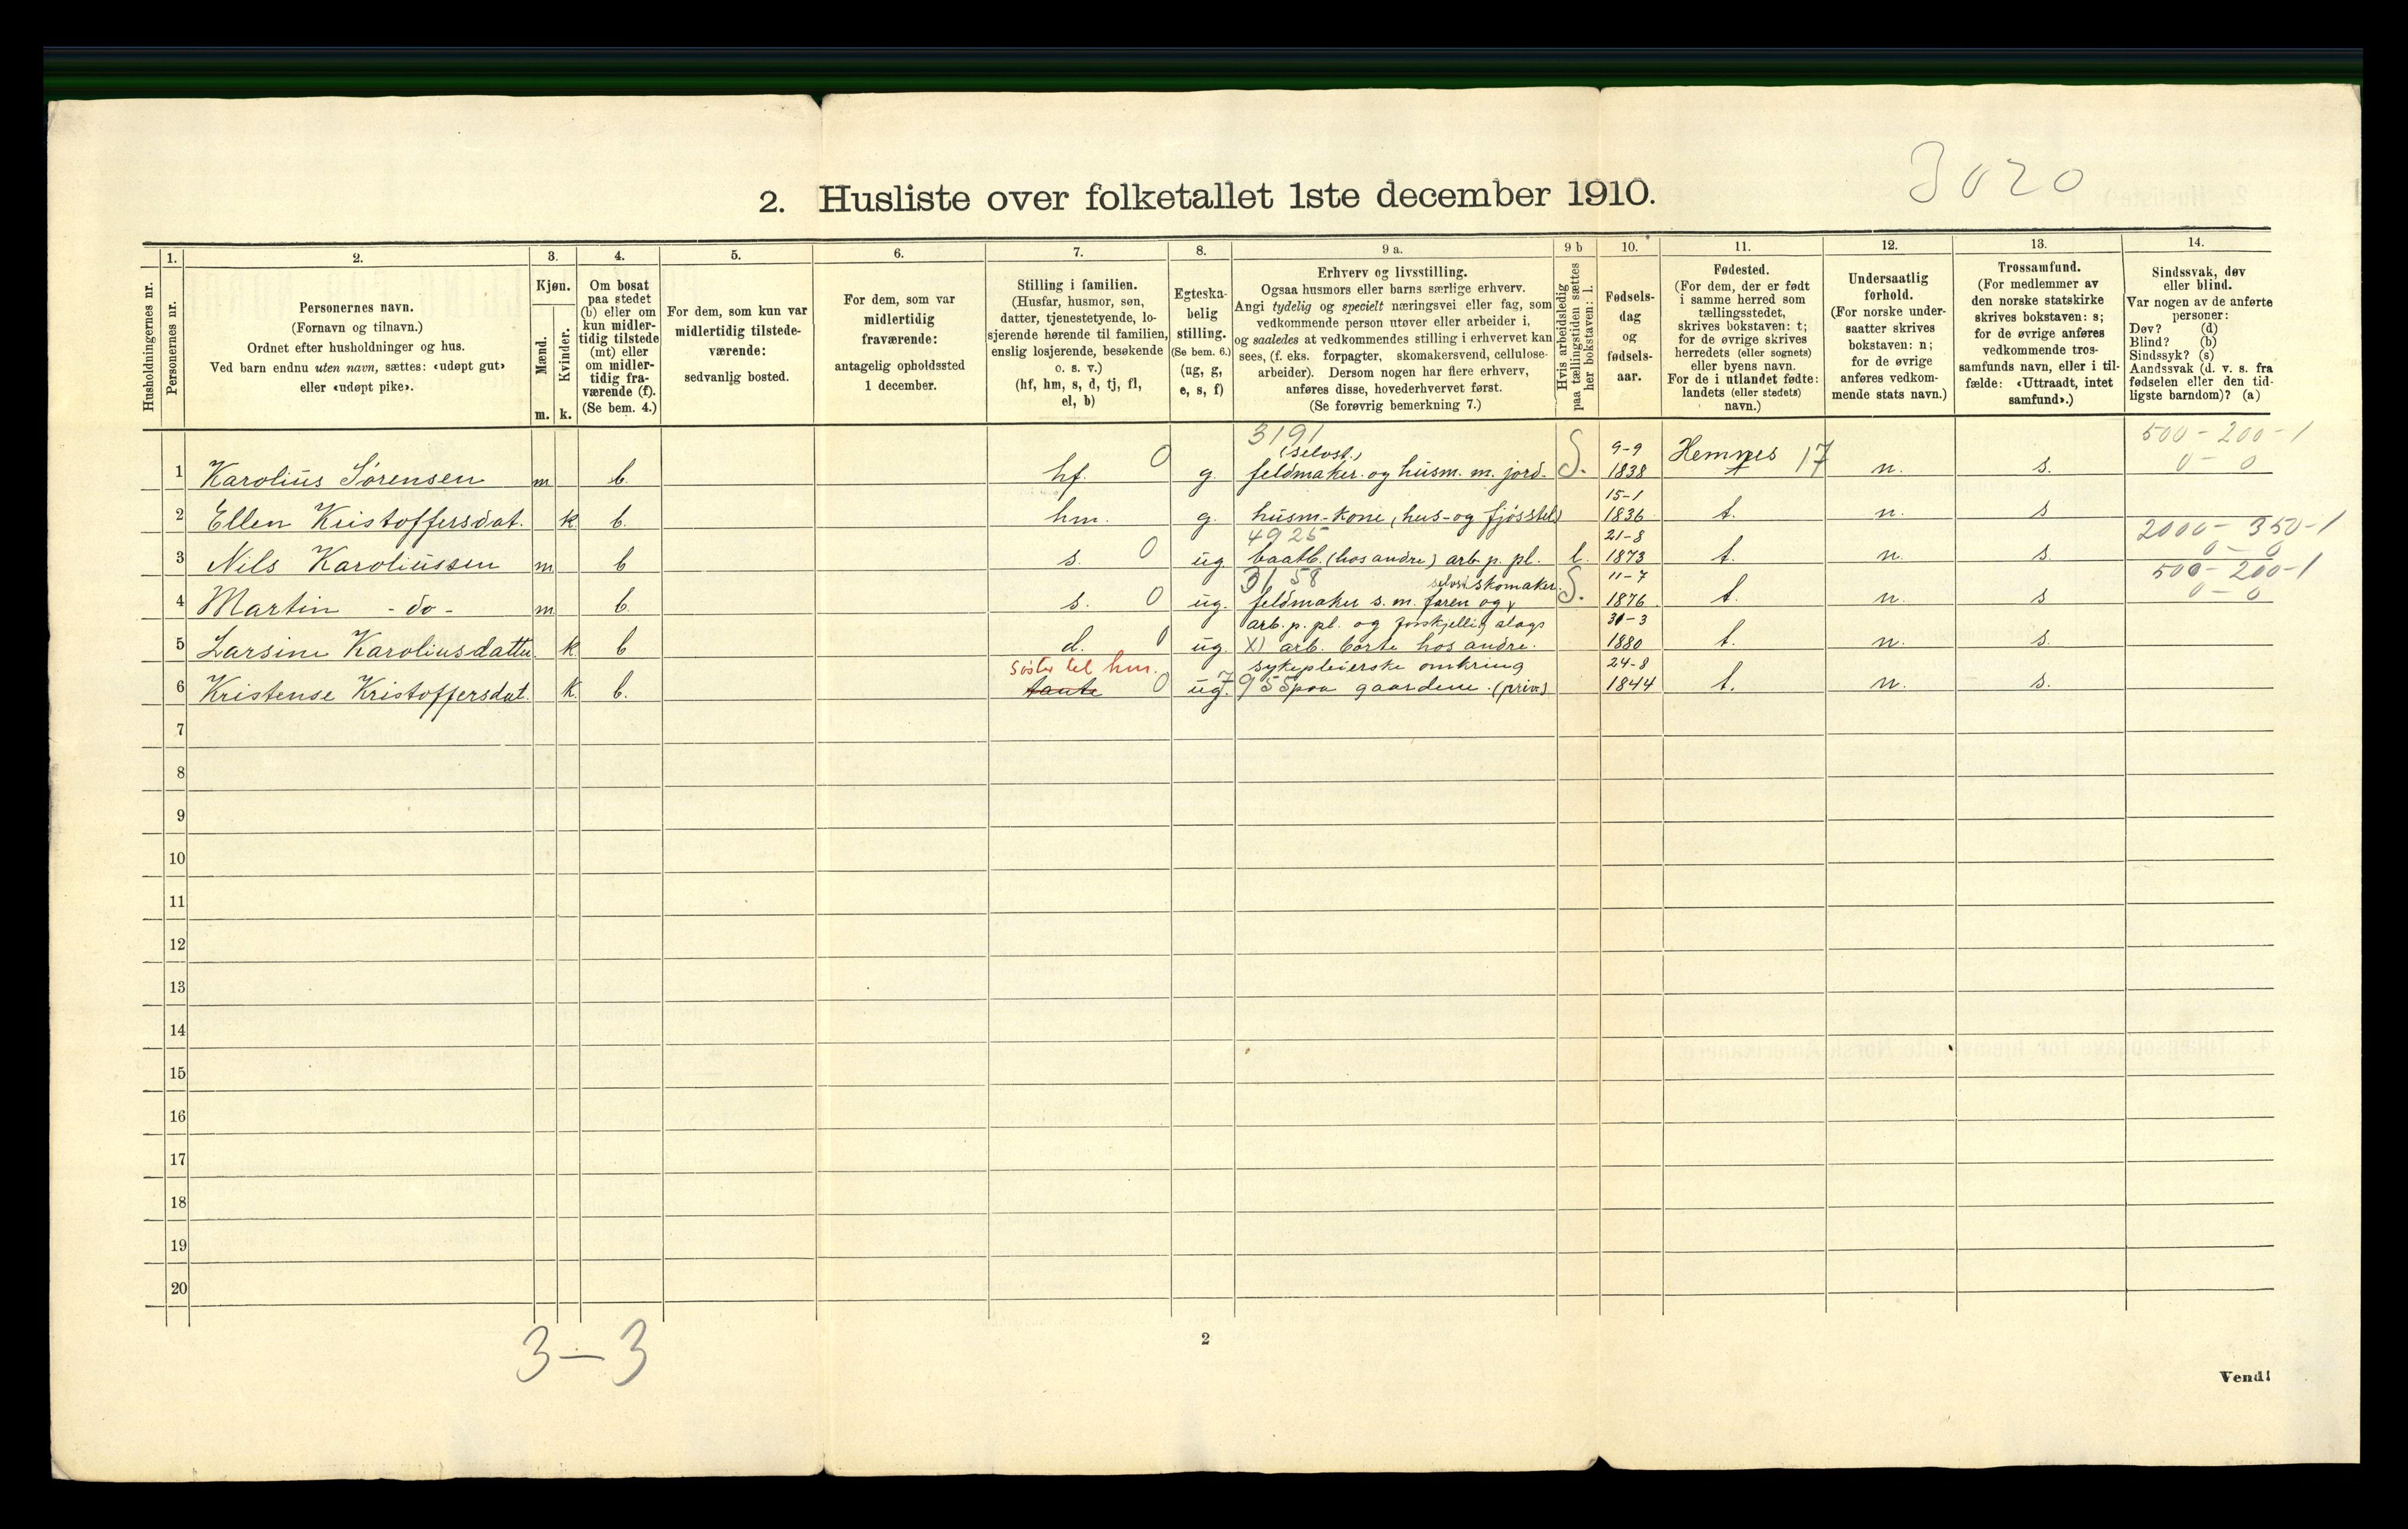 3020
2. Husliste over folketallet 1ste december 1910.
Husholdningernes nr.
1.
Personernes nr.
2.
Personernes navn.
(Fornavn og tilnavn.)
Ordnet efter husholdninger og hus.
Ved barn endnu uten navn, sættes: «udøpt gut»
eller «udøpt pike».
3.
Kjøn.
Mænd.
m.
Kvinder.
k.
4.
Om bosat
paa stedet
(b) eller om
kun midler-
tidig tilstede
(mt) eller
om midler-
tidig fra-
værende (f).
(Se bem. 4.)
5.
For dem, som kun var
midlertidig tilstede-
værende:
sedvanlig bosted.
6.
For dem, som var
midlertidig
fraværende:
antagelig opholdssted
1 december.
7.
Stilling i familien.
(Husfar, husmor, søn,
datter, tjenestetyende, lo-
sjerende hørende til familien,
enslig losjerende, besøkende
o. s. v.)
(hf, hm, s, d, tj, fl,
el, b)
8.
Egteska-
belig
stilling.
(Se bem. 6.)
(ug, g,
e, s, f)
9 a.
Erhverv og livsstilling.
Ogsaa husmors eller barns særlige erhverv.
Angi tydelig og specielt næringsvei eller fag, som
vedkommende person utøver eller arbeider i,
og saaledes at vedkommendes stilling i erhvervet kan
sees, (f. eks. forpagter, skomakersvend, cellulose-
arbeider). Dersom nogen har flere erhverv,
anføres disse, hovederhvervet først.
(Se forøvrig bemerkning 7.)
9 b
Hvis arbeidsledig
paa tællingstiden sættes
her bokstaven: l.
10.
Fødsels-
dag
og
fødsels-
aar.
11.
Fødested.
(For dem, der er født
i samme herred som
tællingsstedet,
skrives bokstaven: t;
for de øvrige skrives
herredets (eller sognets)
eller byens navn.
For de i utlandet fødte:
landets (eller stedets)
navn.)
12.
Undersaatlig
forhold.
(For norske under-
saatter skrives
bokstaven: n;
for de øvrige
anføres vedkom-
mende stats navn.)
13.
Trossamfund.
(For medlemmer av
den norske statskirke
skrives bokstaven: s;
for de øvrige anføres
vedkommende tros-
samfunds navn, eller i til-
fælde: «Uttraadt, intet
samfund».)
14.
Sindssvak, døv
eller blind.
Var nogen av de anførte
personer:
Døv? (d)
Blind? (b)
Sindssyk? (s)
Aandssvak (d. v. s. fra
fødselen eller den tid-
ligste barndom)? (a)
3191 500-200-1
(selvst.) 9-9
1 Karolius Sørensen m b. hf. 0 g. feldmaker. og husm. m. jord. S. 1838 Hemnes 17 n. s. 0-0
15-1
2 Ellen Kristoffersdat. k b. hm. g. husm-kone, hus- og fjøsstel) 1836 t. n. s
4925 21-8 2000-350-1
3 Nils Karoliussen m b s. 0 ug baatb. (hos andre) arb. p. pl. l. 1873 t. n. s 0-0
3158 selvst skomaker 11-7 500-200-1
4 Martin -do- m b. s. 0 ug. feldmaker s. m. faren og x S. 1876 t. n. s 0-0
arb. p. pl. og forskjellig slags 31-3
5 Larsine Karoliusdatter. k b d. 0 ug. x) arb. borte hos andre. 1880 t. n. s.
søster til hm. sykepleierske omkring 24-8
6 Kristense Kristoffersdat. k. b. tante 0 ug. 7955 paa gaardene. (priv.) 1844 t. n. s.
7
8
9
10
11
12
13
14
15
16
17
18
19
20
3-3
2
Vend!